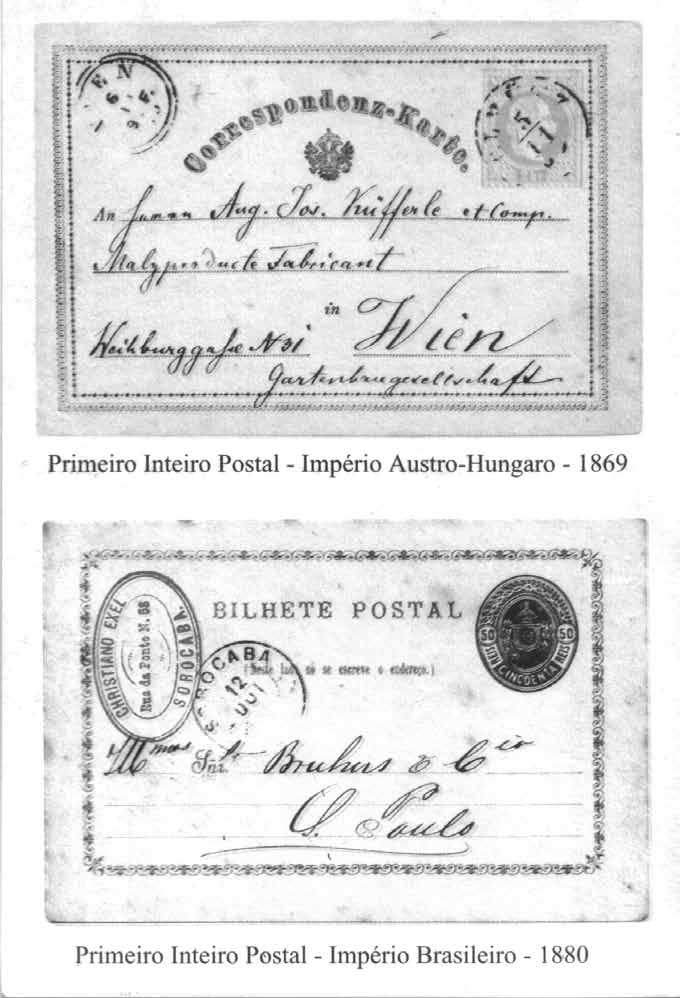 WIEN
6
11
9 F.
Correspondenz-Karte.
5/11
An Herrn Aug. Jos. Küfferle et Comp.
Malzproducte Fabricant
in Wien
Weihburggasse N 31
Gartenbaugesellschaft
Primeiro Inteiro Postal - Império Austro-Hungaro - 1869
CHRISTIANO EXEL
Rua da Ponto N. 68
SOROCABA.
BILHETE POSTAL
50 50
REIS CINCOENTA REIS
SOROCABA
12
OUT
(Neste lado só se escreve o endereço.)
Illmos Snr. Bruhns & Cia
S. Paulo
Primeiro Inteiro Postal - Império Brasileiro - 1880